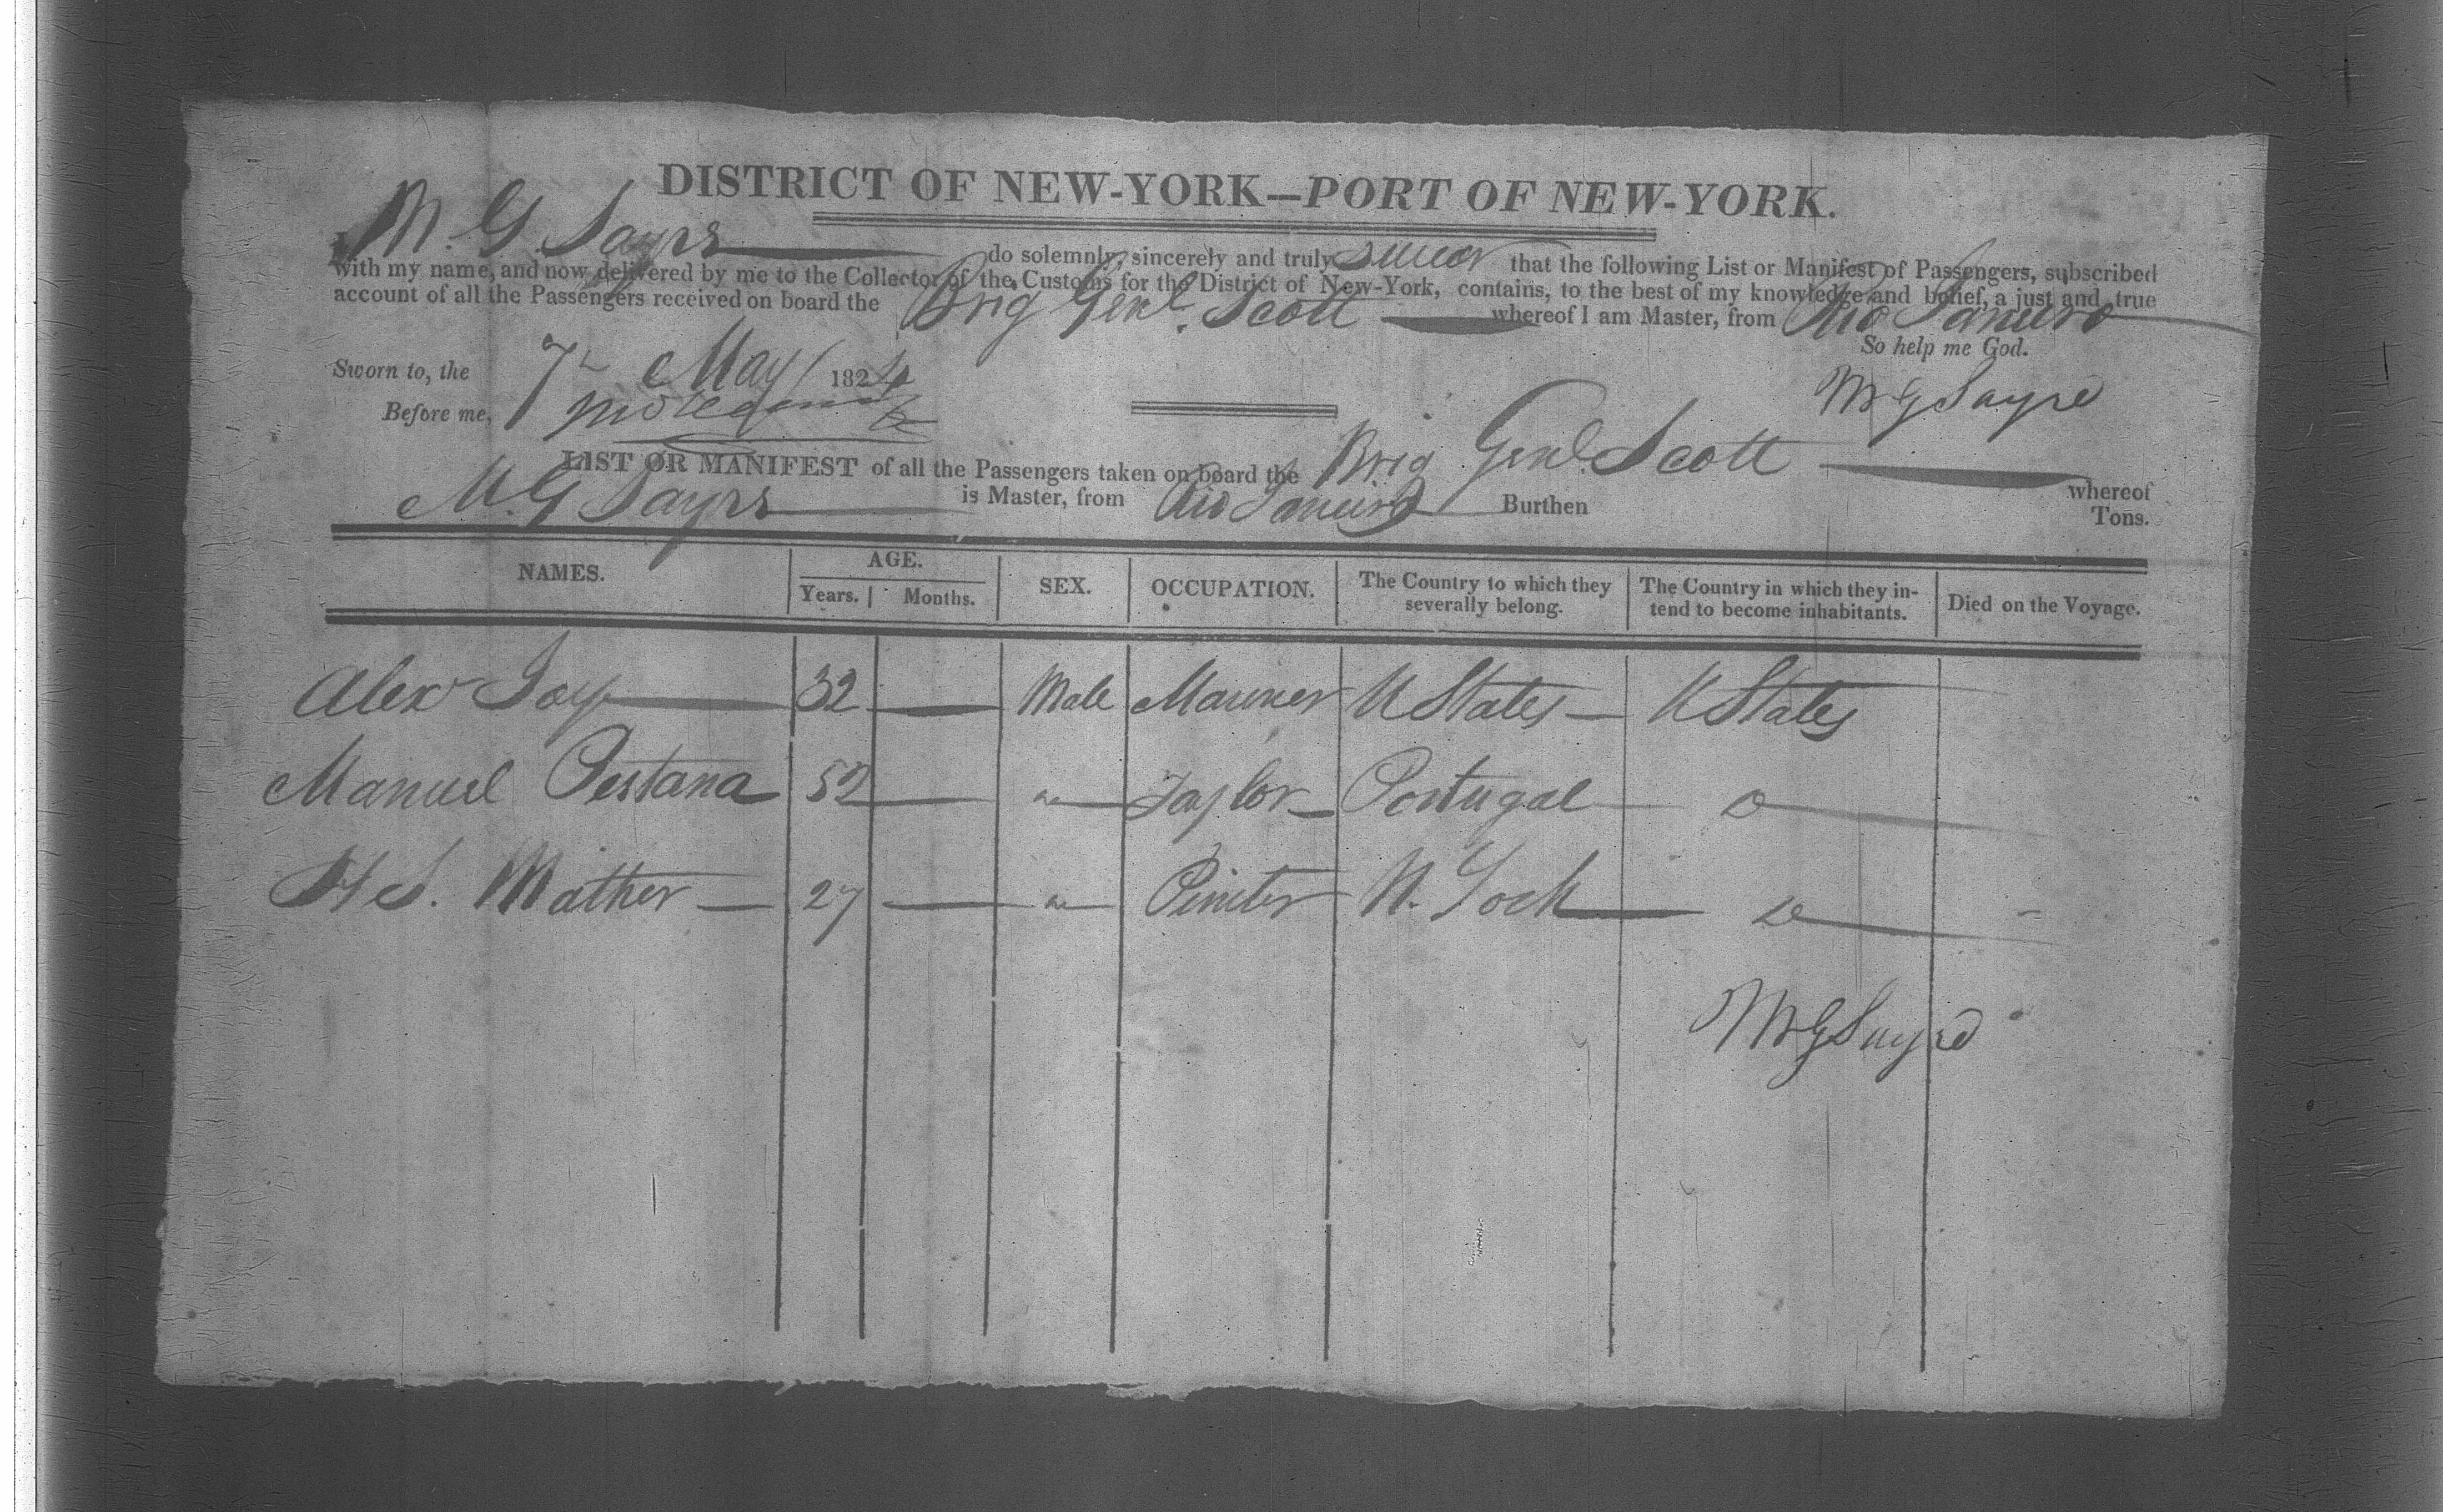 DISTRICT OF NEW-YORK—PORT OF NEW-YORK.
I M. G Sayrs do solemnly, sincerely and truly swear that the following List or Manifest of Passengers, subscribed
with my name, and now delivered by me to the Collector of the Customs for the District of New-York, contains, to the best of my knowledge and belief, a just and true
account of all the Passengers received on board the Brig Genl. Scott whereof I am Master, from Rio Janeiro
So help me God.
Sworn to, the 7th May 1824
M G Sayre
Before me,
LIST OR MANIFEST of all the Passengers taken on board the Brig Genl. Scott whereof
M. G Sayrs is Master, from Rio Janeiro Burthen Tons.
NAMES. AGE. Years. Months. SEX. OCCUPATION. The Country to which they severally belong. The Country in which they intend to become inhabitants. Died on the Voyage.
Alexr 32 Male Mariner U States U States
Manuel Pestana 52 Taylor Portugal
H S. Mather 27 N. York do
M G Sayre